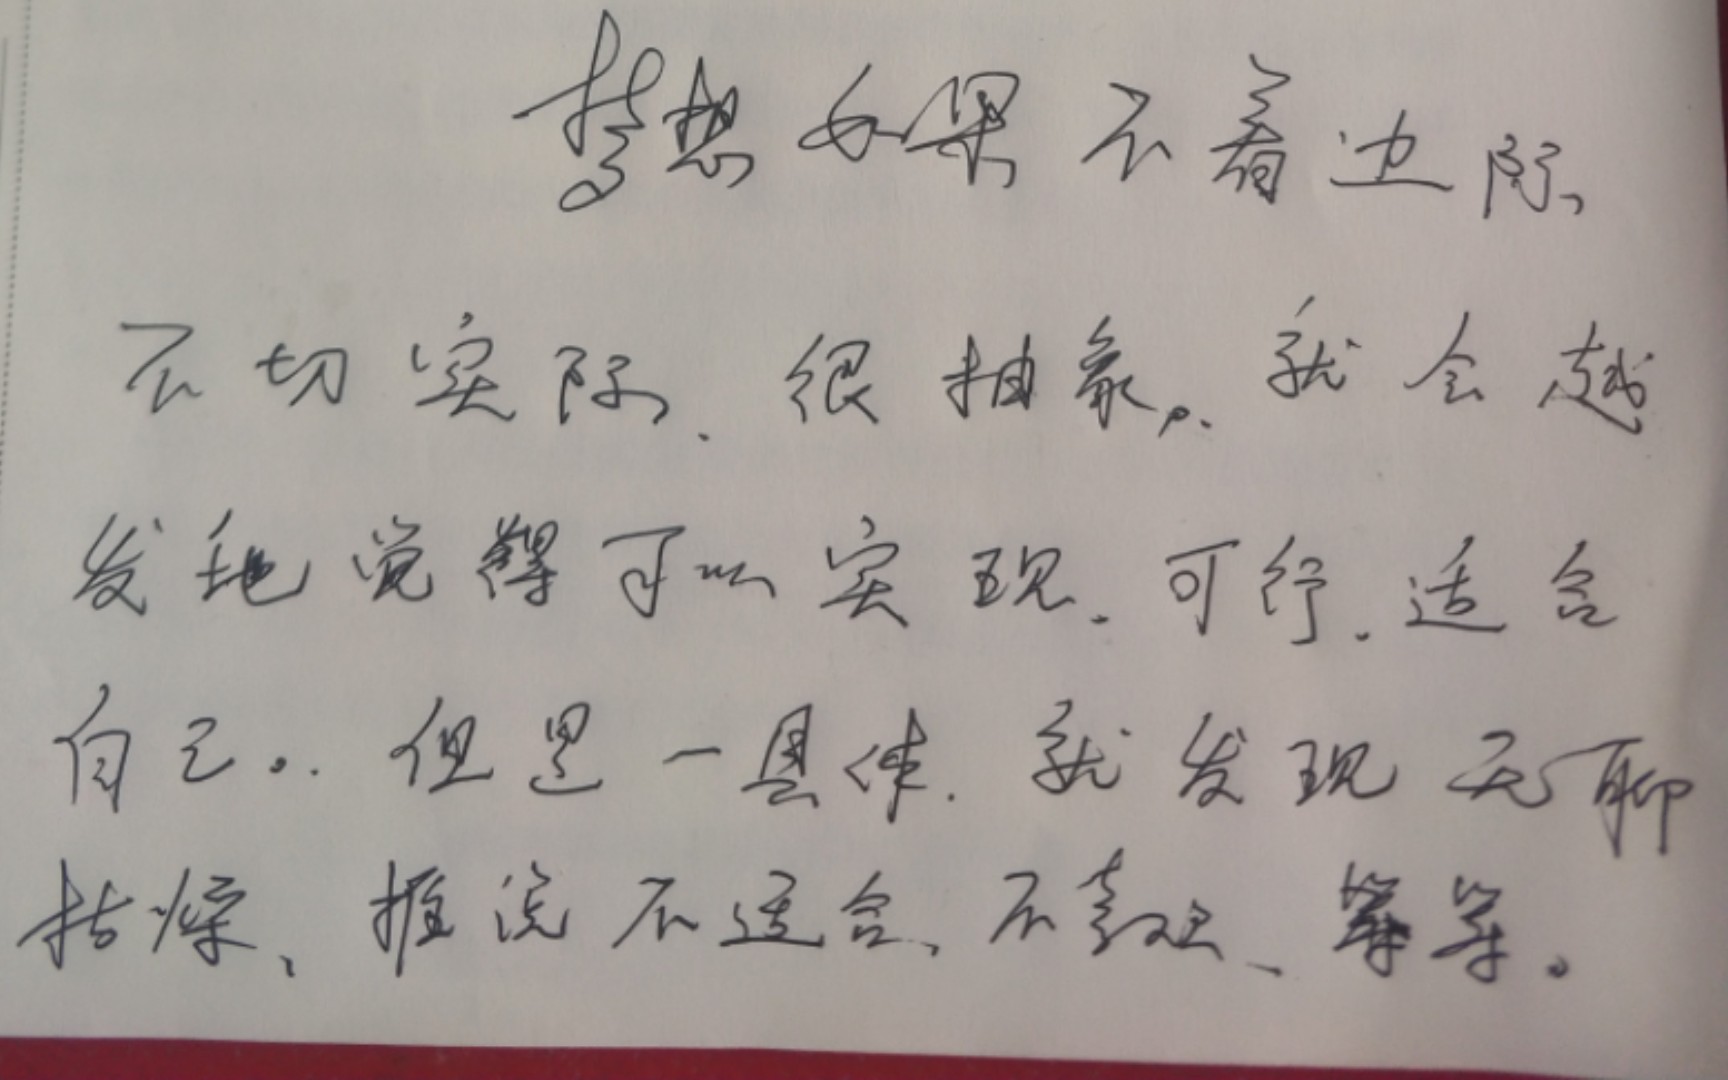 梦想如果不着边际、
不切实际、很抽象,就会越
发地觉得可以实现、可行、适合
自己。但是一具体,就发现无聊
枯燥、推说不适合、不喜欢、等等。